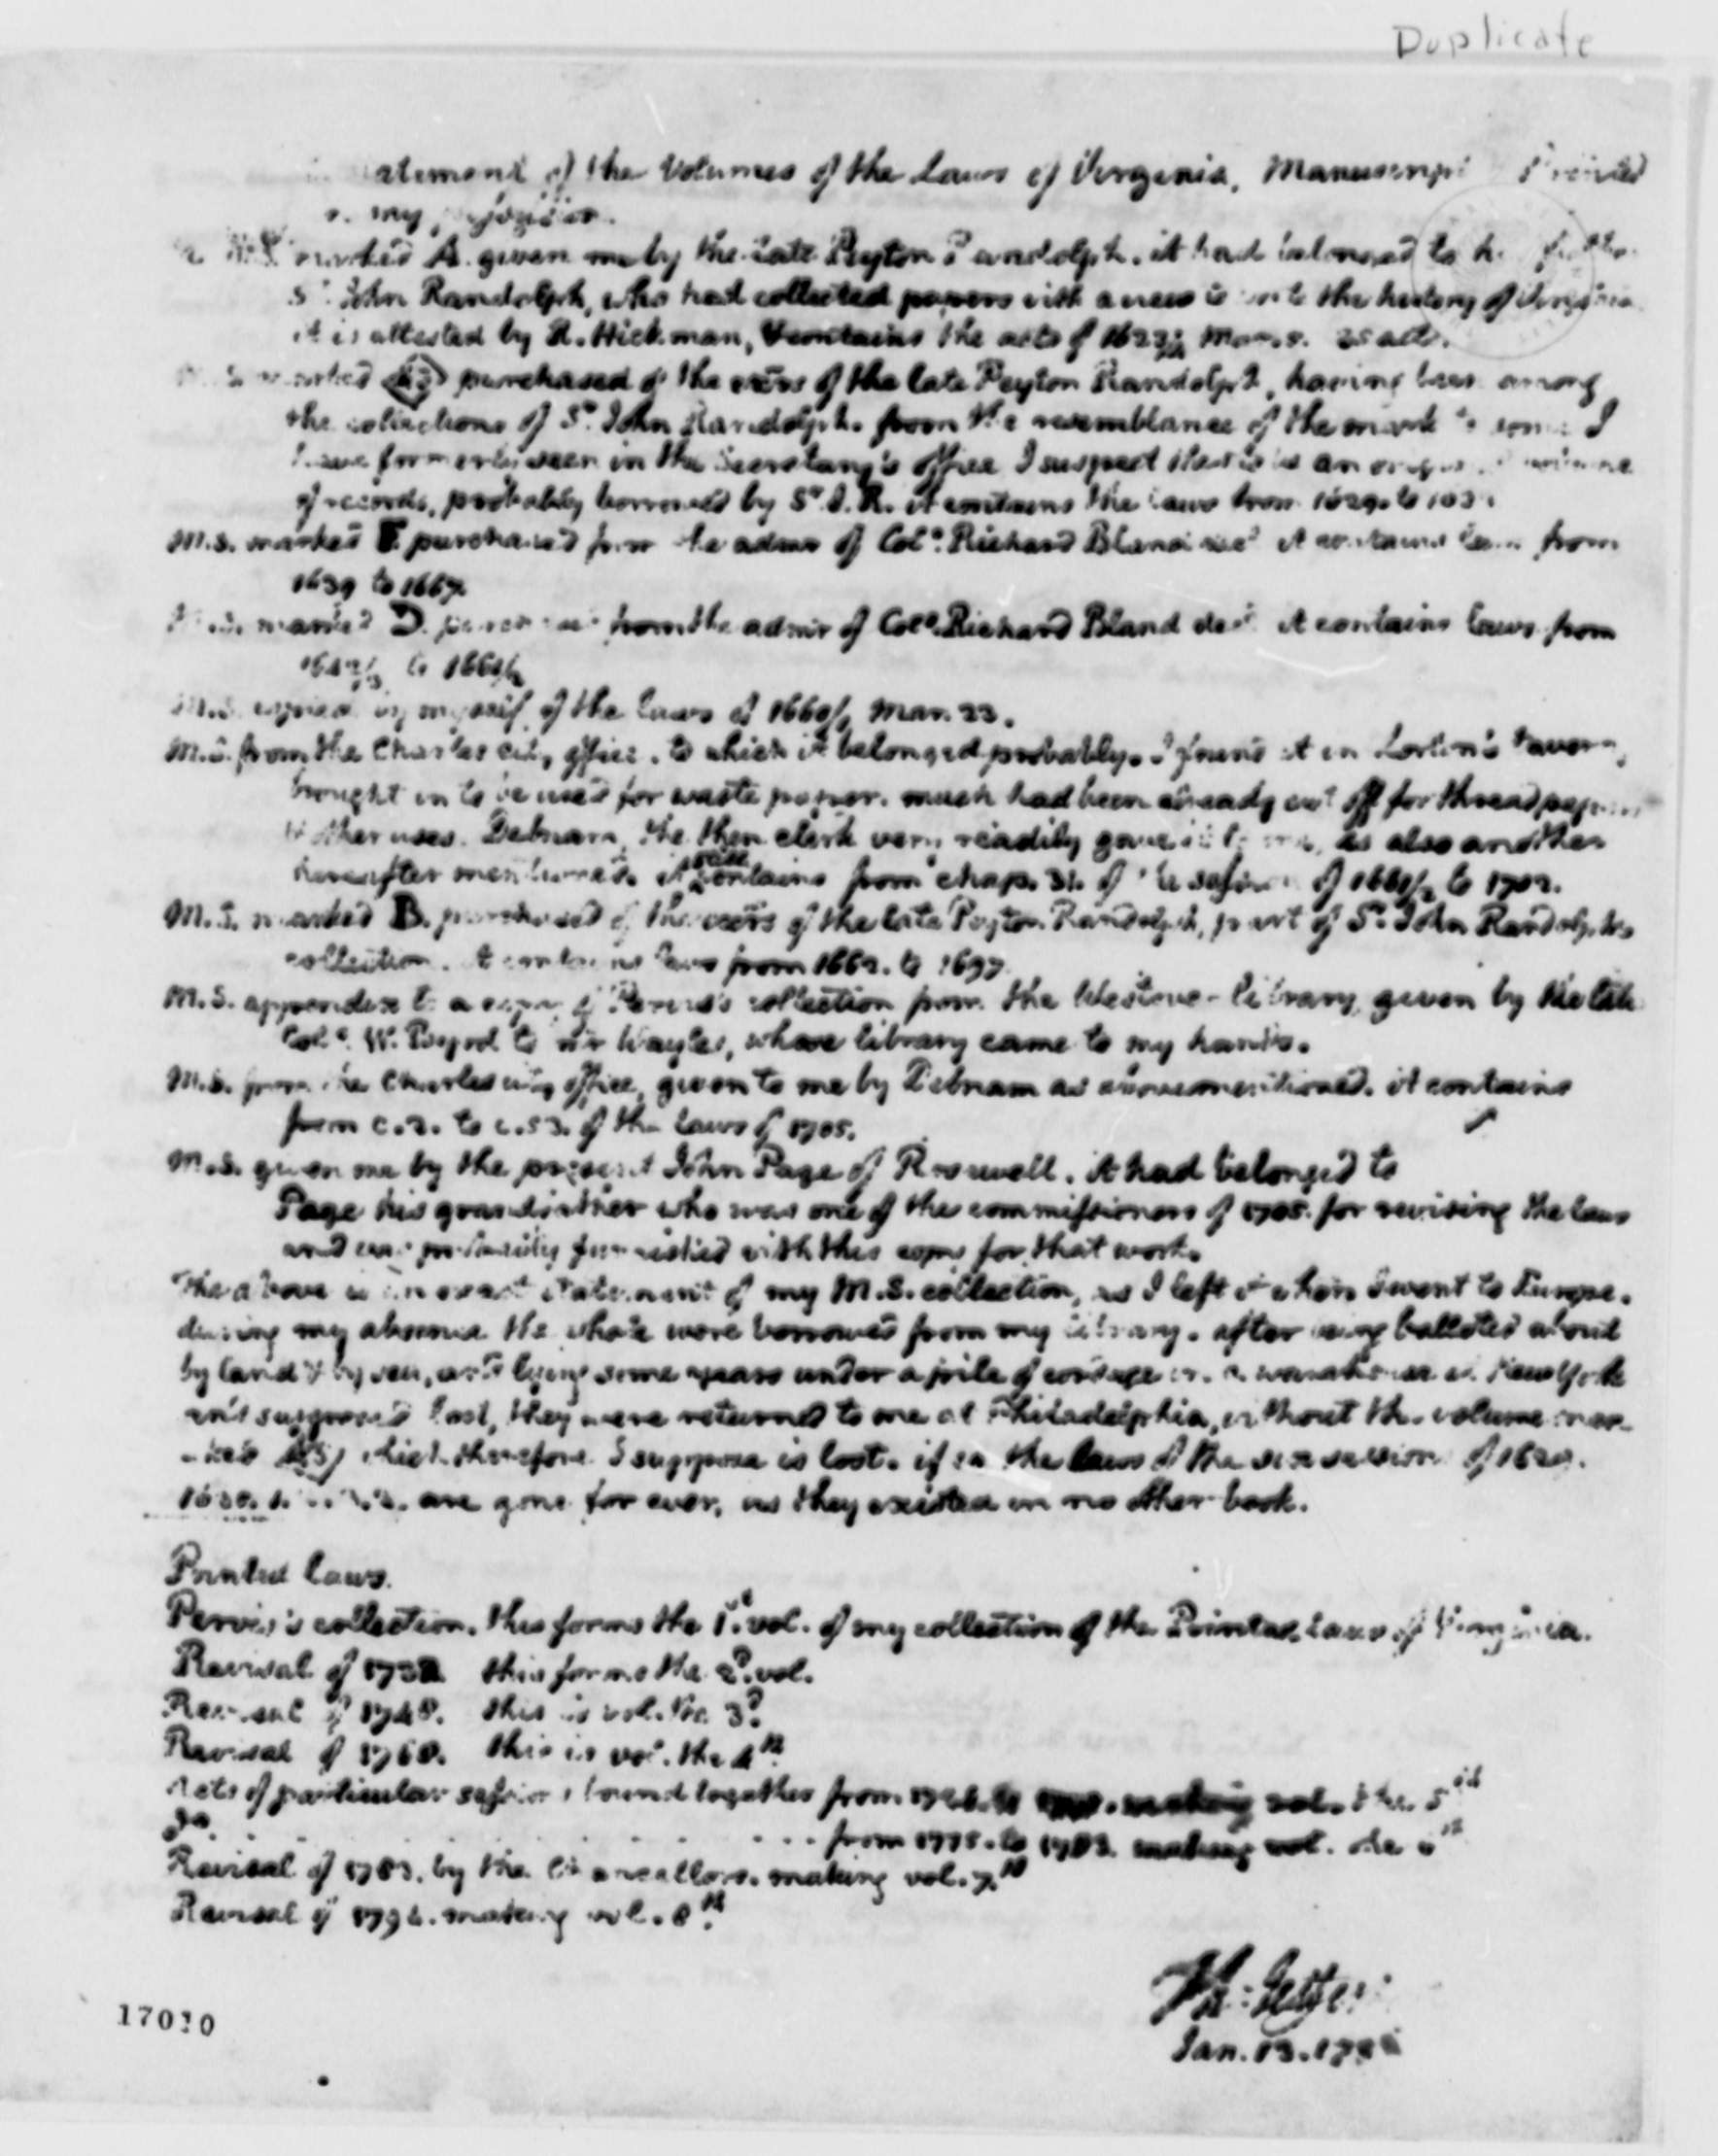 Duplicate
of the Volumes of the Laws of Virginia, Manuscript
my
marked A. given me by the late Peyton Randolph. it had belonged to
Sr. John Randolph, who had collected papers with a view to write the history of Virginia
it is attested by R. Hickman, & contains the acts of
marked purchased of the exrs of the late Peyton Randolph, having been among
the collections of Sr. John Randolph. from the resemblance of the mark to some I
have formerly seen in the Secretary's office I suspect
of records, probably borrowed by Sr. J. R. it contains the laws from 1629. to
M.S. marked purchased from the admr of Colo. Richard Bland decd. it contains laws from
1639 to 1667.
marked D. purchased from the admr of Colo. Richard Bland decd. it contains laws from
to
M.S. copied by myself of the laws of 1660/1 Mar. 23.
M.S. from the Charles city office, to which it belonged probably. I found it in Lorton's tavern,
brought in to be used for waste paper. much had been already cut off for thread papers
& other uses. Debnam, the then clerk very readily gave it to me, as also another
hereafter mentioned. it contains from chap. 31. of the session of 1661/2 to 1702.
M.S. marked B. purchased of the exrs of the late Peyton Randolph, part of Sr. John Randolph's
collection. it contains laws from 1662. to 1697.
M.S. appendix to a copy of Pervis's collection from the Westover library, given by the late
Colo. W. Byrd to mr Wayles, whose library came to my hands.
M.S. from the Charles city office, given to me by Debnam as abovementioned. it contains
from c.2. to c.53. of the laws of 1705.
M.S. given me by the present John Page of Rosewell. it had belonged to
Page his grandfather who was one of the commissioners of 1705. for revising the laws
and was probably furnished with this copy for that work.
The above is an exact statement of my M.S. collection, as I left it when I went to Europe.
during my absence the whole were borrowed from my library. after being balloted about
by land & by sea, and lying some years under a pile of cordage in a warehouse in New York
and supposed lost, they were returned to me at Philadelphia, without the volume mar-
-ked which therefore I suppose is lost. if so the laws of the six sessions of 1629.
1630. are gone for ever, as they existed in no other book.
Printed Laws.
Pervis's collection. this forms the 1st. vol. of my collection of the Printed laws of Virginia.
Revisal of 1732. this forms the 2d. vol.
Revisal of 1748. this is vol. the 3d.
Revisal of 1768. this is vol. the 4th
Acts of particular sessions bound together from making vol. the 5th
do. from 1775. to 1783. making vol. the 6th
Revisal of 1783. by the Chancellors. making vol. 7th
Revisal of 1794. making vol. 8th.
Th: Jefferson
Jan. 13. 179
17020